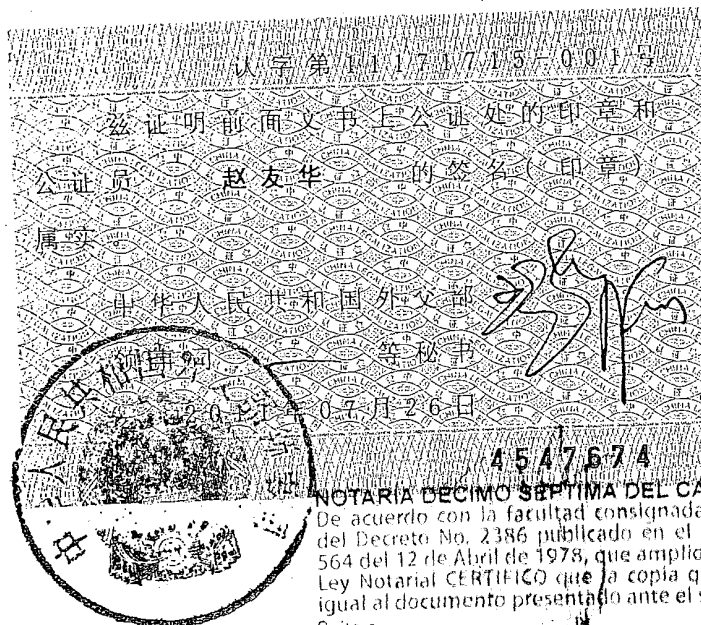 认字第11171715-001号
兹证明前面文书上公证处的印章和
公证员 赵友华 的签名(印章)
属实。
中华人民共和国外交部
领事司 等秘书
2011年07月26日
4547674
NOTARIA DECIMO SEPTIMA DEL CA
De acuerdo con la facultad consignada
del Decreto No. 2386 publicado en el
564 del 12 de Abril de 1978, que amplió
Ley Notarial CERTIFICO que la copia q
igual al documento presentado ante el s